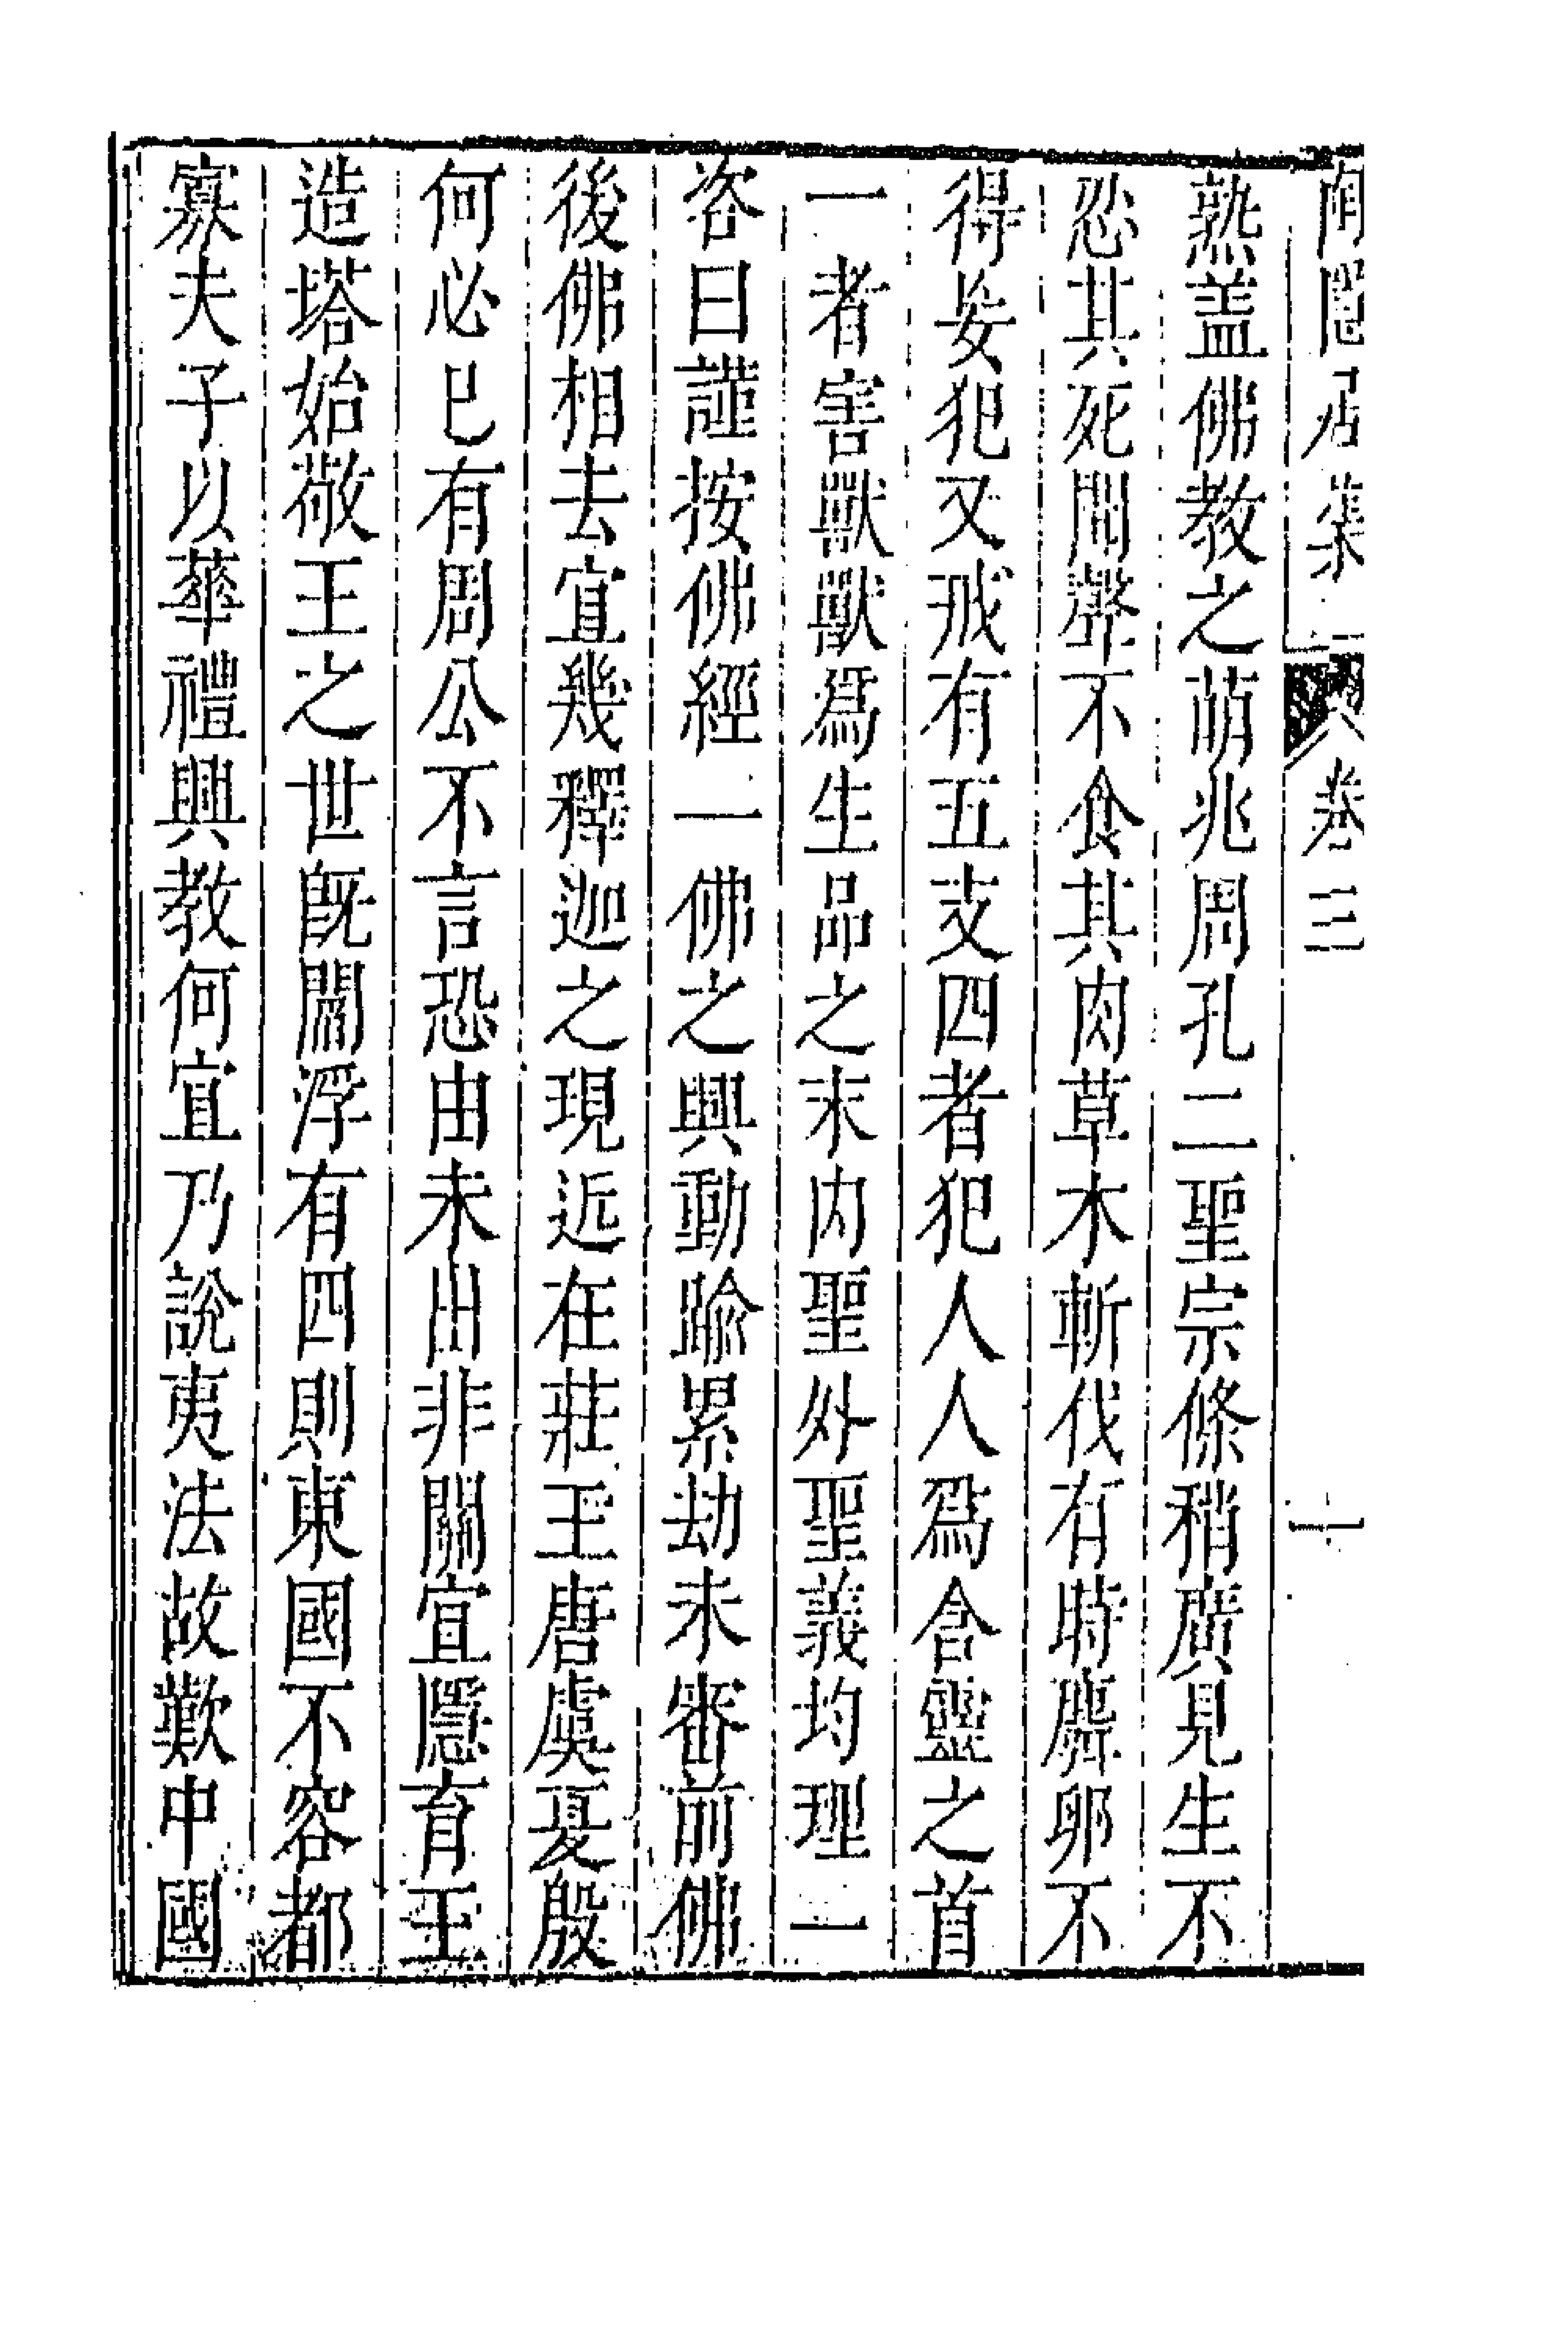 陶隱居集 卷三 十
熟盖佛教之萌兆周孔二聖宗條稍廣見生不
忍其死聞聲不食其肉草木斬伐有時麛卵不
得妄犯又戒有五支四者犯人人爲含靈之首
一者害獸獸爲生品之末内聖外聖義均理一
咨曰謹按佛經一佛之興動踰累劫未審前佛
後佛相去宜幾釋迦之現近在莊王唐虞夏殷
何必巳有周公不言恐由未出非關宜隱育王
造塔始敬王之世旣閻浮有四則東國不容都
寡夫子以華禮興教何宜乃說夷法故歎中國